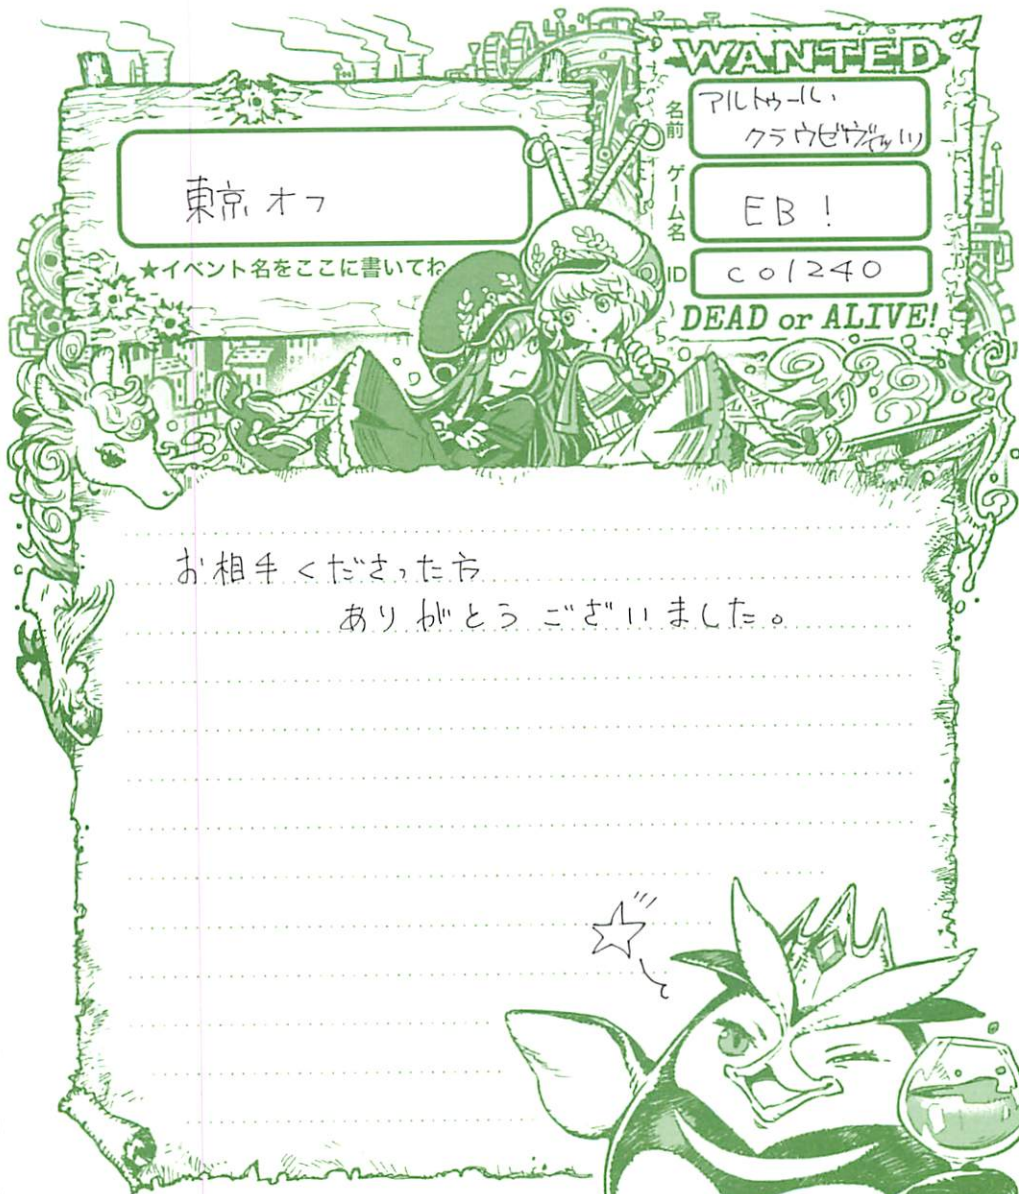 東京オフ
★イベント名をここに書いてね
WANTED
名前
アルトゥール・
ゲーム名
EB!
ID
c01240
DEAD or ALIVE!
お相手くださった方
ありがとうございました。